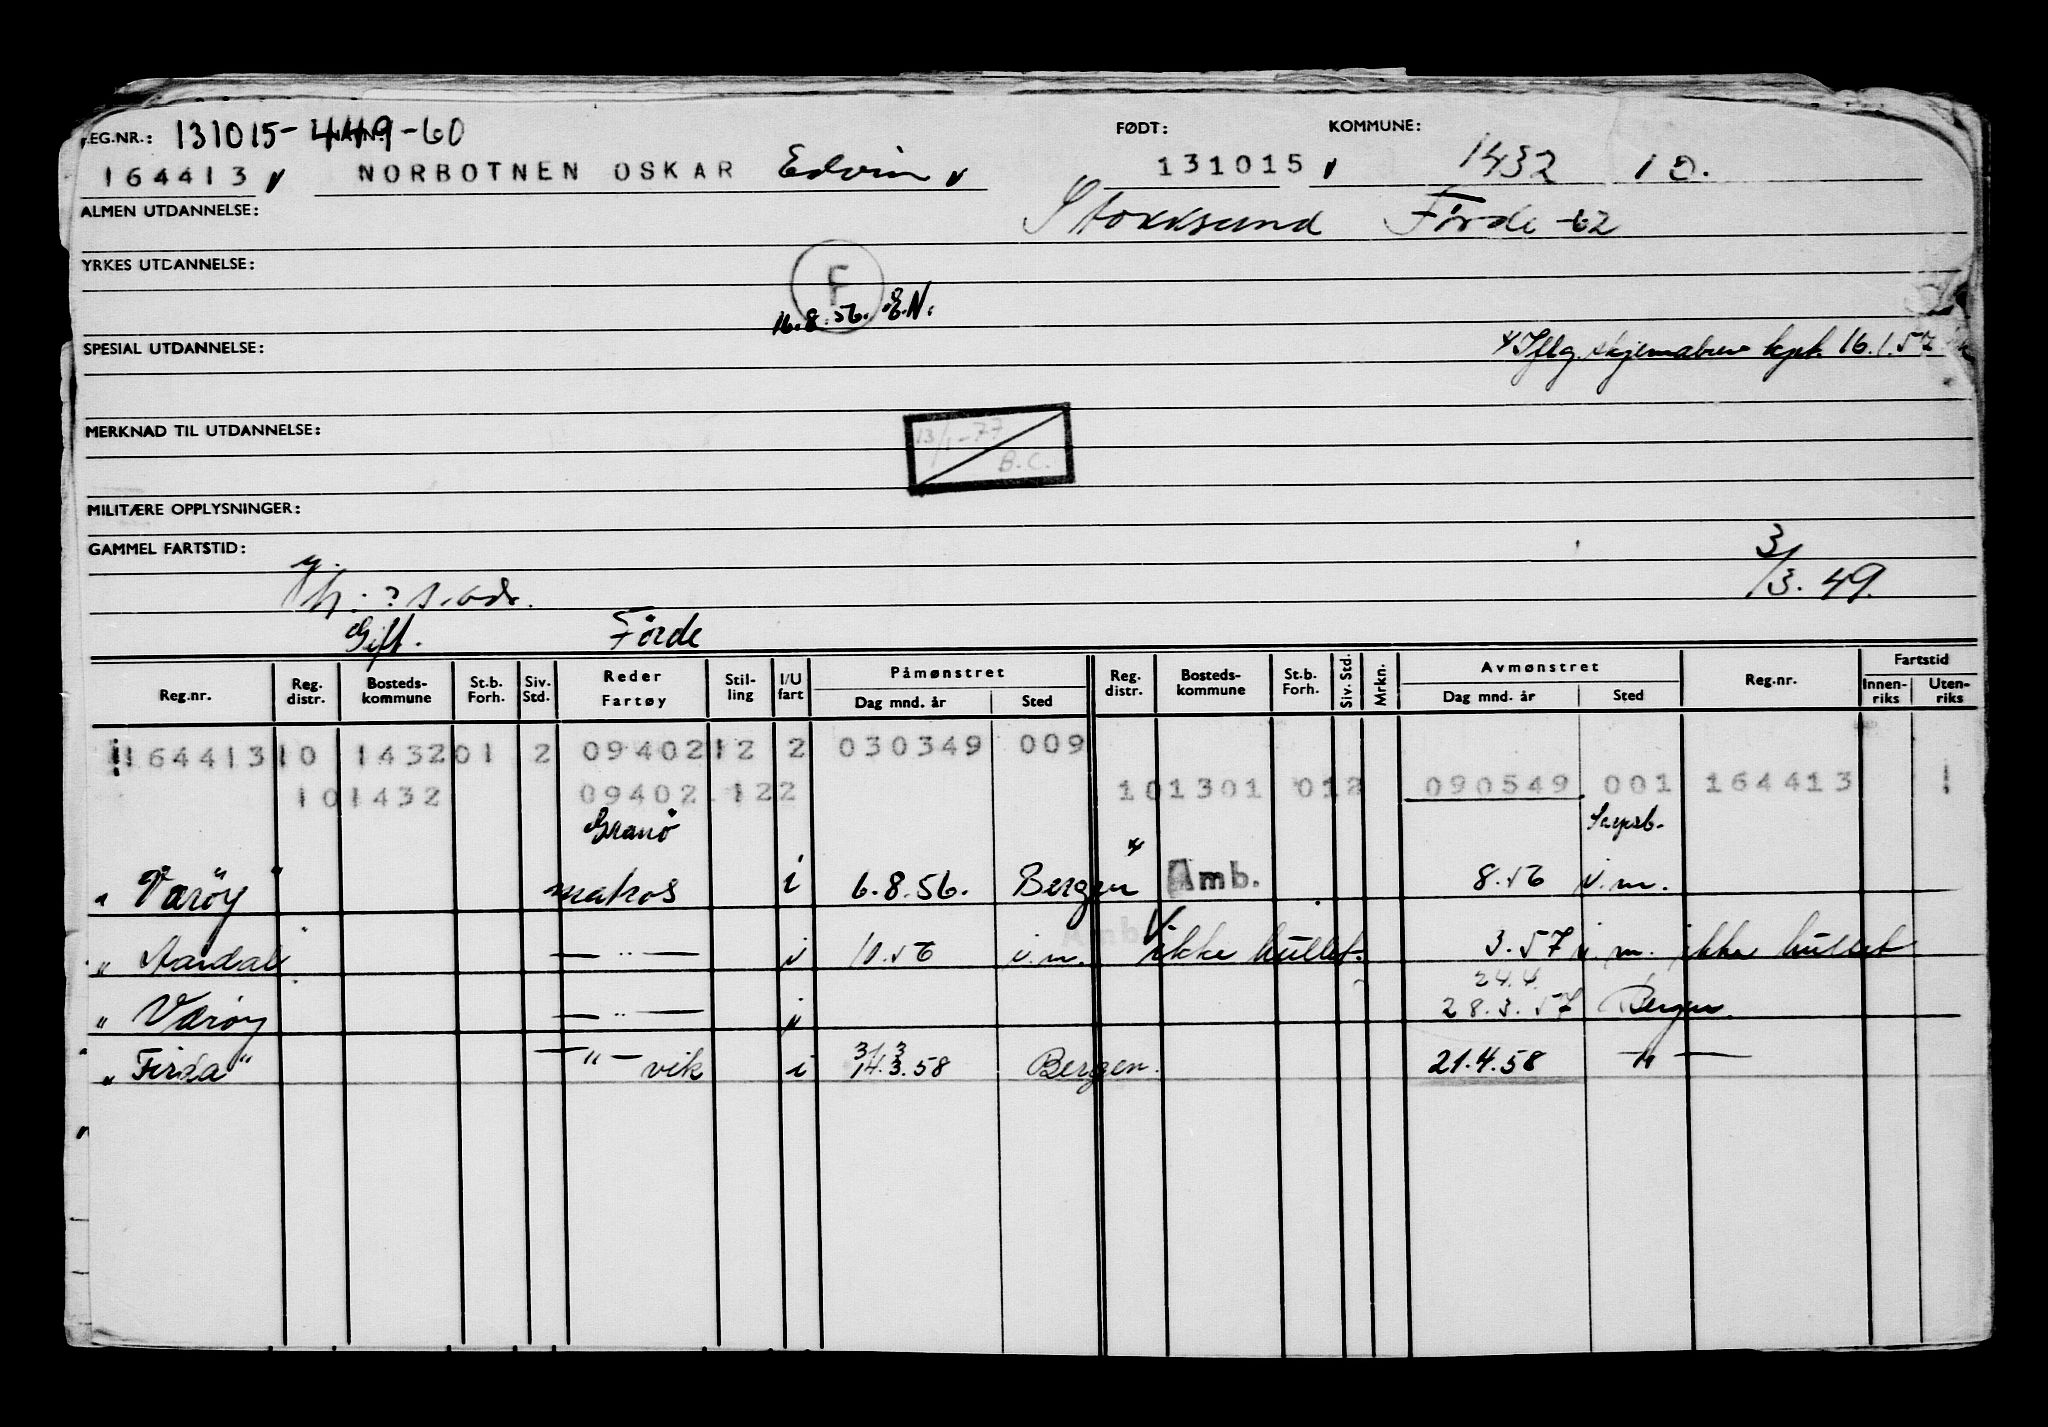 REG.NR.: 131015-449-60 NAVN: FØDT: KOMMUNE:
164413 v NORBOTNEN OSKAR Edvin v 131015 v 1432 10.
ALMEN UTDANNELSE: Stokksund Førde -62
YRKES UTDANNELSE:
F
16.8.56. E.N.
SPESIAL UTDANNELSE: Iflg. skjemabrev kpt. 16.1.57
MERKNAD TIL UTDANNELSE: 13/1-77
B.C.
MILITÆRE OPPLYSNINGER:
GAMMEL FARTSTID: 3/3.49.
Gift. Förde
Reg.nr. Reg. distr. Bosteds-kommune St.b. Forh. Siv. Std. Reder Fartøy Stil-ling I/U fart Påmønstret Dag mnd. år Sted Reg. distr. Bosteds-kommune St.b. Forh. Siv. Std. Mrkn. Avmønstret Dag mnd. år Sted Reg.nr. Fartstid Innen-riks Uten-riks
164413 10 1432 01 2 09402 12 2 030349 009
10 1432 09402 12 2 10 1301 01 2 090549 001 164413 1
Granö Sarpsb.
"Værøy" matros i 6.8.56. Bergen Amb. 8.56 i.m.
"Aardal" — " — i 10.56 i.m. ikke hullet. 3.57 i.m. ikke hullet
24.4.
"Værøy — " — i 28.3.57 Bergen.
31.3
"Firda" — " — vik i 14.3.58 Bergen. 21.4.58 — " —